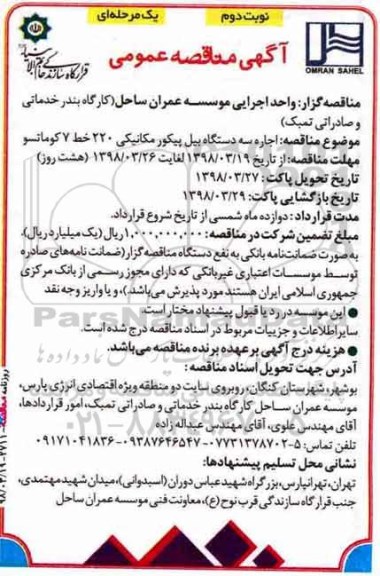 نوبت دوم
یک مرحله‌ای
آگهی مناقصه عمومی
OMRAN SAHEL
مناقصه‌گزار: واحد اجرایی موسسه عمران ساحل (کارگاه بندر خدماتی
و صادراتی تمبک)
موضوع مناقصه: اجاره سه دستگاه بیل پیکور مکانیکی ۲۲۰ خط ۷ کوماتسو
مهلت مناقصه: از تاریخ ۱۳۹۸/۰۳/۱۹ لغایت ۱۳۹۸/۰۳/۲۶ (هشت روز)
تاریخ تحویل پاکت: ۱۳۹۸/۰۳/۲۷
تاریخ بازگشایی پاکت: ۱۳۹۸/۰۳/۲۹
مدت قرارداد: دوازده ماه شمسی از تاریخ شروع قرارداد.
مبلغ تضمین شرکت در مناقصه: ۱,۰۰۰,۰۰۰,۰۰۰ ریال (یک میلیارد ریال).
به صورت ضمانت‌نامه بانکی به نفع دستگاه مناقصه‌گزار (ضمانت نامه‌های صادره
توسط موسسات اعتباری غیربانکی که دارای مجوز رسمی از بانک مرکزی
جمهوری اسلامی ایران هستند مورد پذیرش می‌باشد.)، و یا واریز وجه نقد
این موسسه در رد یا قبول پیشنهاد مختار است.
سایر اطلاعات و جزییات مربوط در اسناد مناقصه درج شده است.
هزینه درج آگهی بر عهده برنده مناقصه می‌باشد.
آدرس جهت تحویل اسناد مناقصه:
بوشهر، شهرستان کنگان، روبروی سایت دو منطقه ویژه اقتصادی انرژی پارس،
موسسه عمران ساحل کارگاه بندر خدماتی و صادراتی تمبک، امور قراردادها،
آقای مهندس علوی، آقای مهندس عبداله زاده
تلفن تماس: ۵-۰۷۷۳۱۳۷۸۷۰۲-۰۹۳۸۷۶۴۶۵۴۷-۰۹۱۷۱۰۴۱۸۳۶
نشانی محل تسلیم پیشنهادها:
تهران، تهرانپارس، بزرگراه شهید عباس دوران (اسبدوانی)، میدان شهید مهتمدی،
جنب قرارگاه سازندگی قرب نوح (ع)، معاونت فنی موسسه عمران ساحل